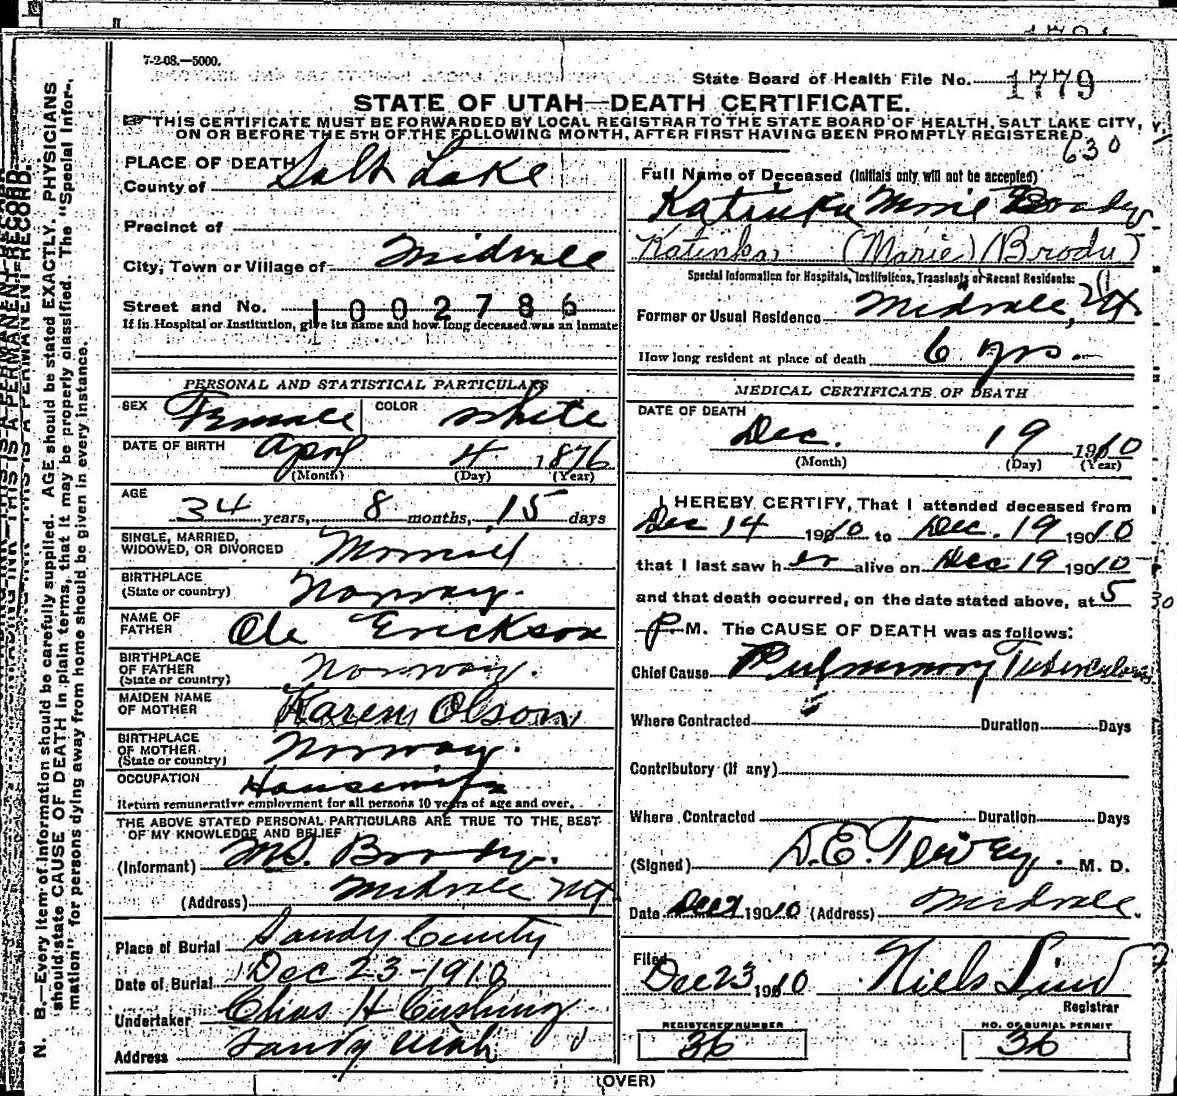 7-2-08.—5000.
State Board of Health File No. 1779
STATE OF UTAH—DEATH CERTIFICATE.
THIS CERTIFICATE MUST BE FORWARDED BY LOCAL REGISTRAR TO THE STATE BOARD OF HEALTH, SALT LAKE CITY,
ON OR BEFORE THE 5TH OF THE FOLLOWING MONTH, AFTER FIRST HAVING BEEN PROMPTLY REGISTERED.
630
PLACE OF DEATH
County of Salt Lake
Precinct of
City, Town or Village of Midvale
Street and No. 1002786
If in Hospital or Institution, give its name and how long deceased was an inmate
PERSONAL AND STATISTICAL PARTICULARS
SEX Female COLOR White
DATE OF BIRTH April 4 1876
(Month) (Day) (Year)
AGE
34 years, 8 months, 15 days
SINGLE, MARRIED,
WIDOWED, OR DIVORCED Married
BIRTHPLACE
(State or country) Norway.
NAME OF
FATHER Ole Erickson
BIRTHPLACE
OF FATHER
(State or country) Norway.
MAIDEN NAME
OF MOTHER Karen Olson
BIRTHPLACE
OF MOTHER
(State or country) Norway.
OCCUPATION Housewife
Return remunerative employment for all persons 10 years of age and over.
THE ABOVE STATED PERSONAL PARTICULARS ARE TRUE TO THE BEST
OF MY KNOWLEDGE AND BELIEF
(Informant) Brody.
(Address) Midvale Ut
Place of Burial Sandy
Date of Burial Dec 23-1910
Undertaker Chas H Cushing
Address Sandy Utah
Full Name of Deceased (Initials only will not be accepted)
Katinka Marie Brody
Katinka (Marie) (Brody)
Special Information for Hospitals, Institutions, Transients or Recent Residents:
Former or Usual Residence Midvale, Ut
How long resident at place of death 6 yrs.
MEDICAL CERTIFICATE OF DEATH
DATE OF DEATH
Dec. 19 1910
(Month) (Day) (Year)
I HEREBY CERTIFY, That I attended deceased from
Dec 14 19010 to Dec. 19 19010
that I last saw her alive on Dec 19 19010
and that death occurred, on the date stated above, at 5 30
P. M. The CAUSE OF DEATH was as follows:
Chief Cause Pulmonary Tuberculosis
Where Contracted Duration Days
Contributory (if any)
Where Contracted Duration Days
(Signed) D.E. M. D.
Date 19010 (Address) Midvale.
Filed Dec 23 19010 Niels Lind
Registrar
REGISTERED NUMBER
36
NO. OF BURIAL PERMIT
36
(OVER)
N. B.—Every item of information should be carefully supplied. AGE should be stated EXACTLY. PHYSICIANS
should state CAUSE OF DEATH in plain terms, that it may be properly classified. The "Special Infor-
mation" for persons dying away from home should be given in every instance.
THIS IS A PERMANENT RECORD.